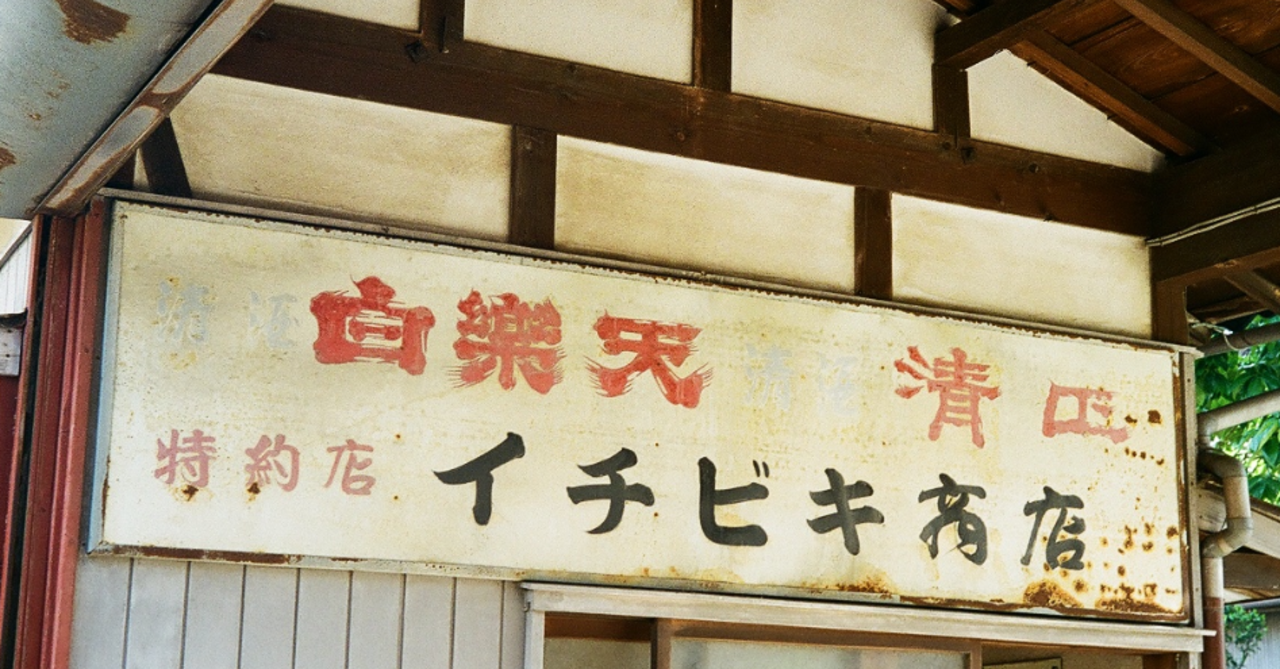 清酒 白樂天 清酒 清正
特約店 イチビキ商店